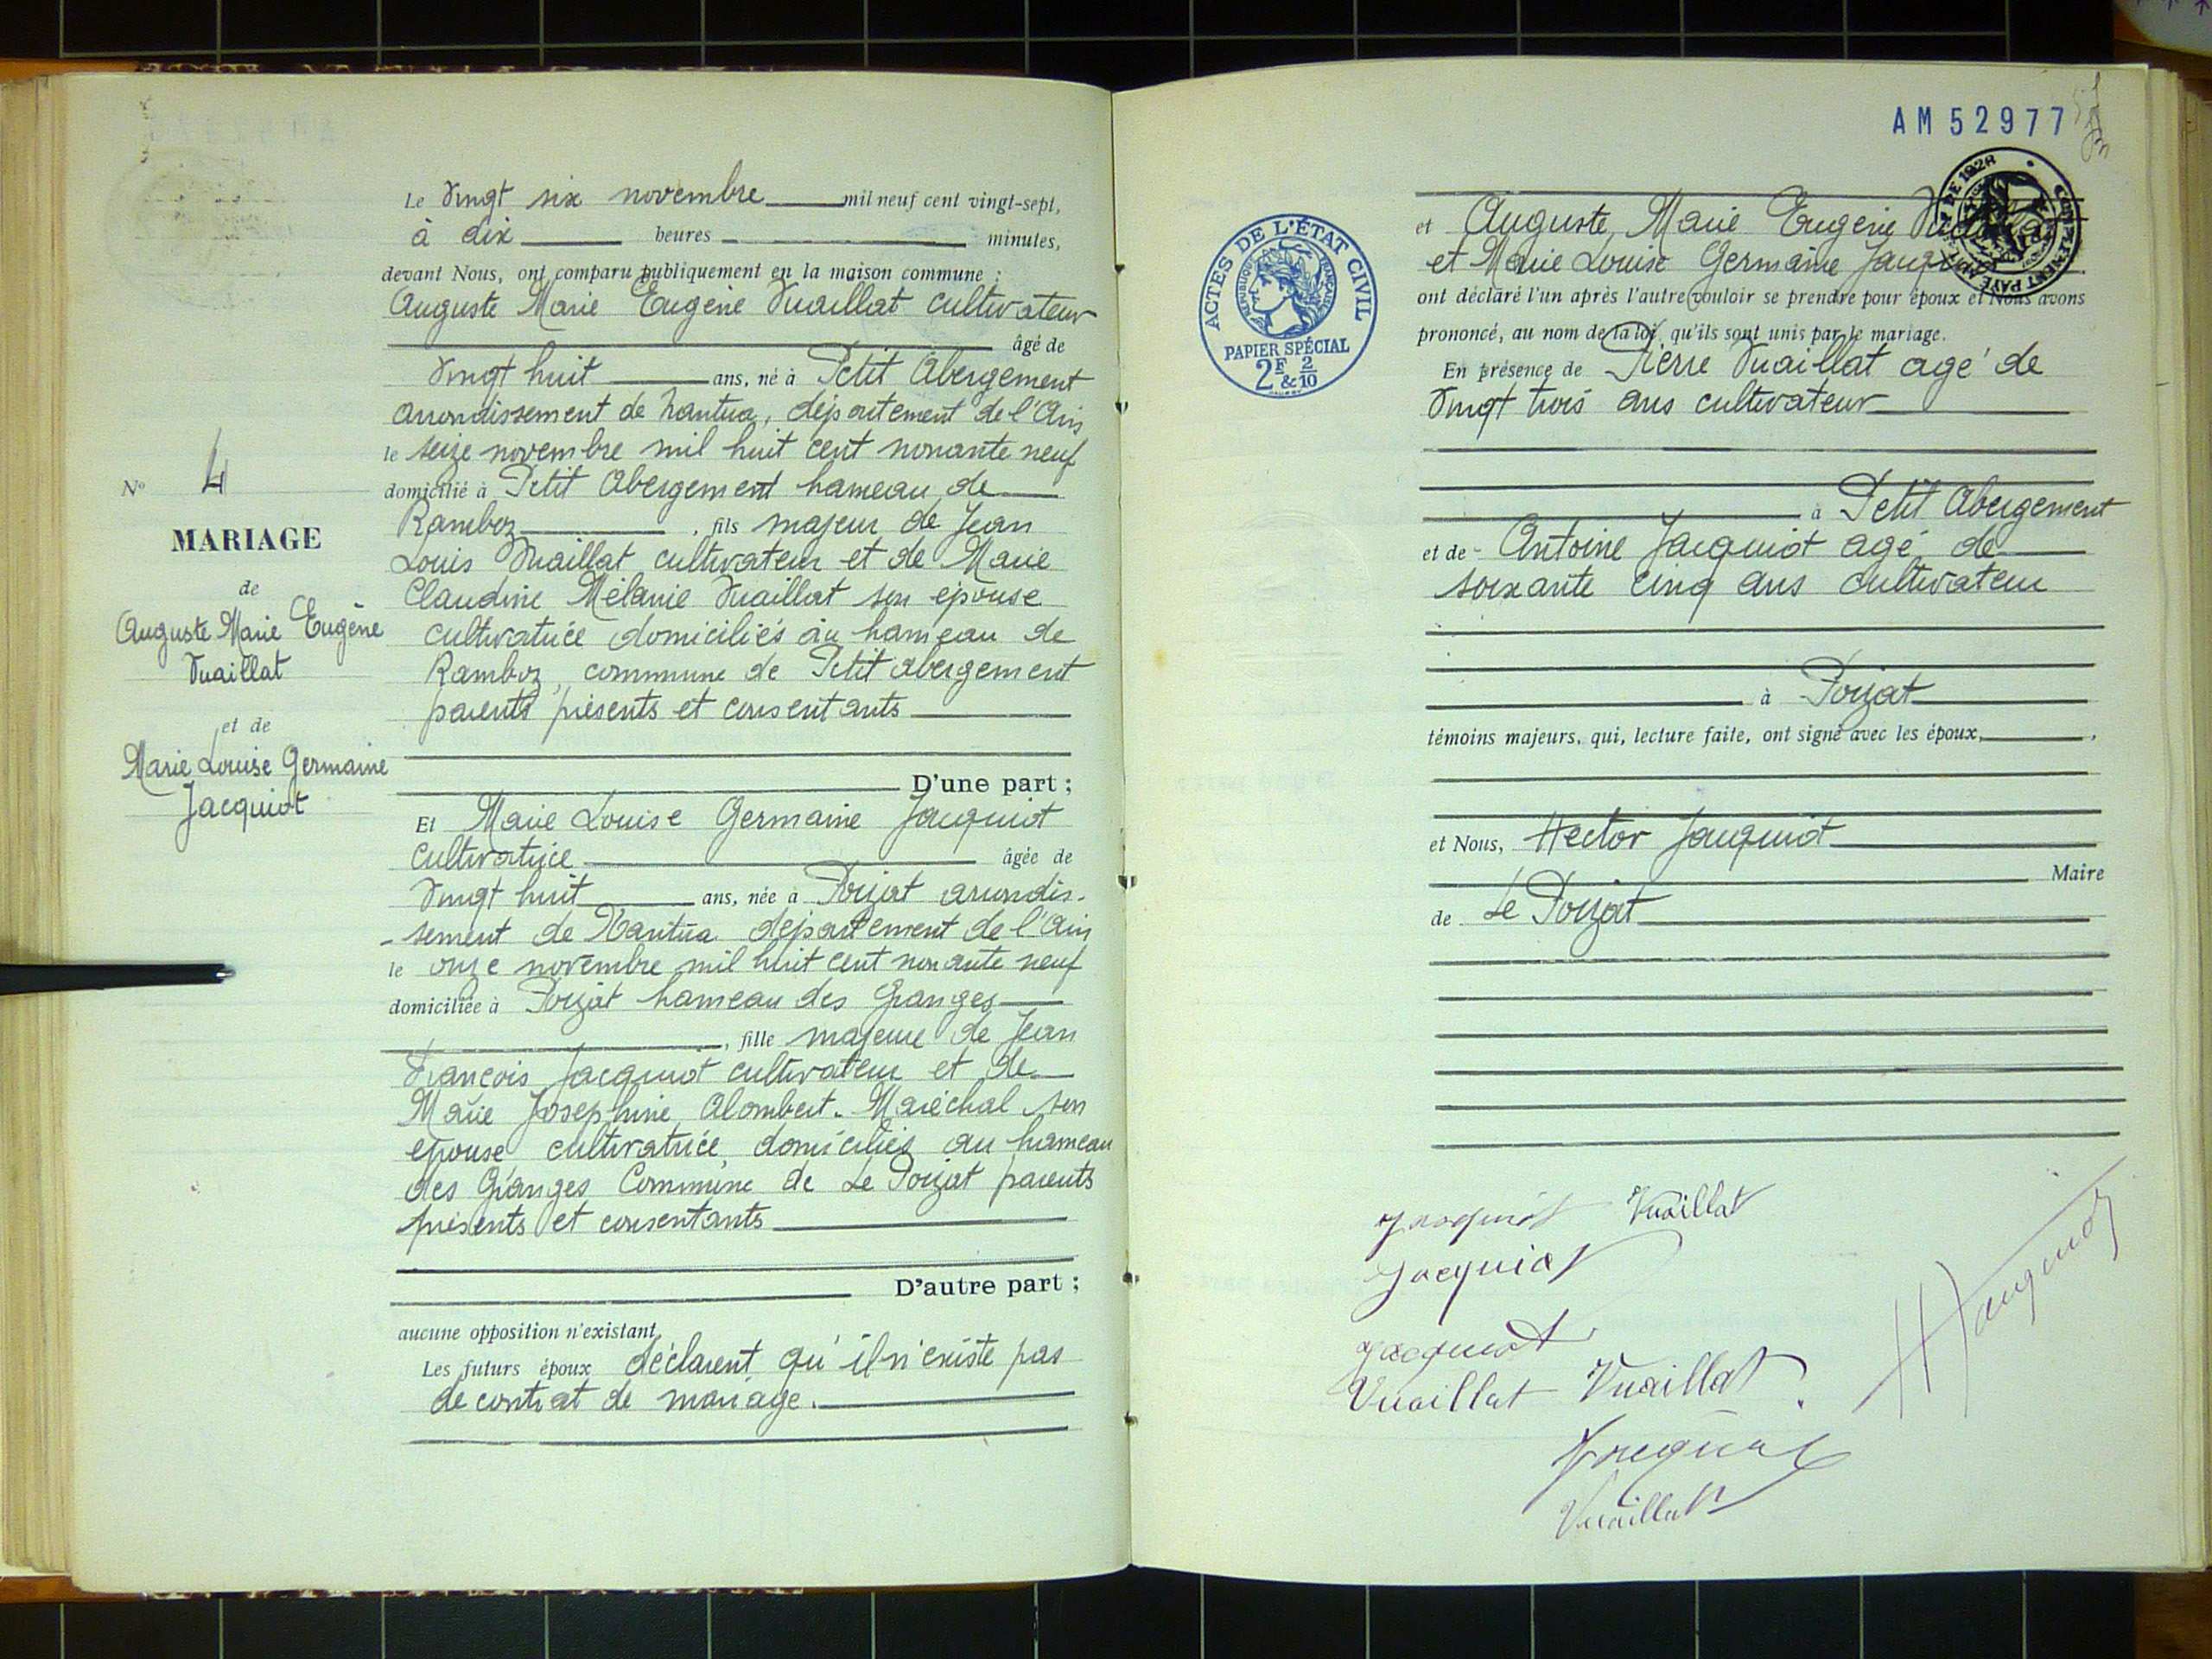 Le Vingt six novembre mil neuf cent vingt-sept,
à dix heures minutes,
devant Nous, ont comparu publiquement en la maison commune :
Auguste Marie Eugène Vuaillat cultivateur
âgé de
Vingt huit ans, né à Petit Abergement
arrondissement de Nantua, département de l'Ain
le seize novembre mil huit cent nonante neuf
domicilié à Petit Abergement hameau de
Ramboz, fils majeur de Jean
Louis Vuaillat cultivateur et de Marie
Claudine Mélanie Vuaillat son épouse
cultivatrice domiciliés au hameau de
Ramboz, commune de Petit abergement
parents présents et consentants
D'une part ;
N° 4
MARIAGE
de
Auguste Marie Eugène
Vuaillat
et de
Marie Louise Germaine
Jacquiot
Et Marie Louise Germaine Jacquiot
Cultivatrice âgée de
Vingt huit ans, née à Poizat arrondis-
-sement de Nantua département de l'Ain
le onze novembre mil huit cent nonante neuf
domiciliée à Poizat hameau des Granges
, fille majeure de Jean
François Jacquiot cultivateur et de
Marie Josephine Alombert-Maréchal son
épouse cultivatrice domiciliés au hameau
des Granges Commune de Le Poizat parents
présents et consentants
D'autre part ;
aucune opposition n'existant
Les futurs époux déclarent qu'il n'existe pas
de contrat de mariage.
AM 52977
ACTES DE L'ÉTAT CIVIL
RÉPUBLIQUE FRANÇAISE
PAPIER SPÉCIAL
2F & 2/10
DE 1926
COMPLEMENT PAYÉ
et Auguste Marie Eugène
et Marie Louise Germaine
ont déclaré l'un après l'autre vouloir se prendre pour époux et Nous avons
prononcé, au nom de la loi, qu'ils sont unis par le mariage.
En présence de Pierre Vuaillat agé de
Vingt trois ans cultivateur
à Petit Abergement
et de Antoine Jacquiot agé de
soixante cinq ans cultivateur
à Poizat
témoins majeurs, qui, lecture faite, ont signé avec les époux,
et Nous, Hector Jacquiot
Maire
de Le Poizat
Jacquiot Vuaillat
Jacquiot
Jacquiot
Vuaillat Vuaillat
H Jacquiot
Jacquiot
Vuaillat